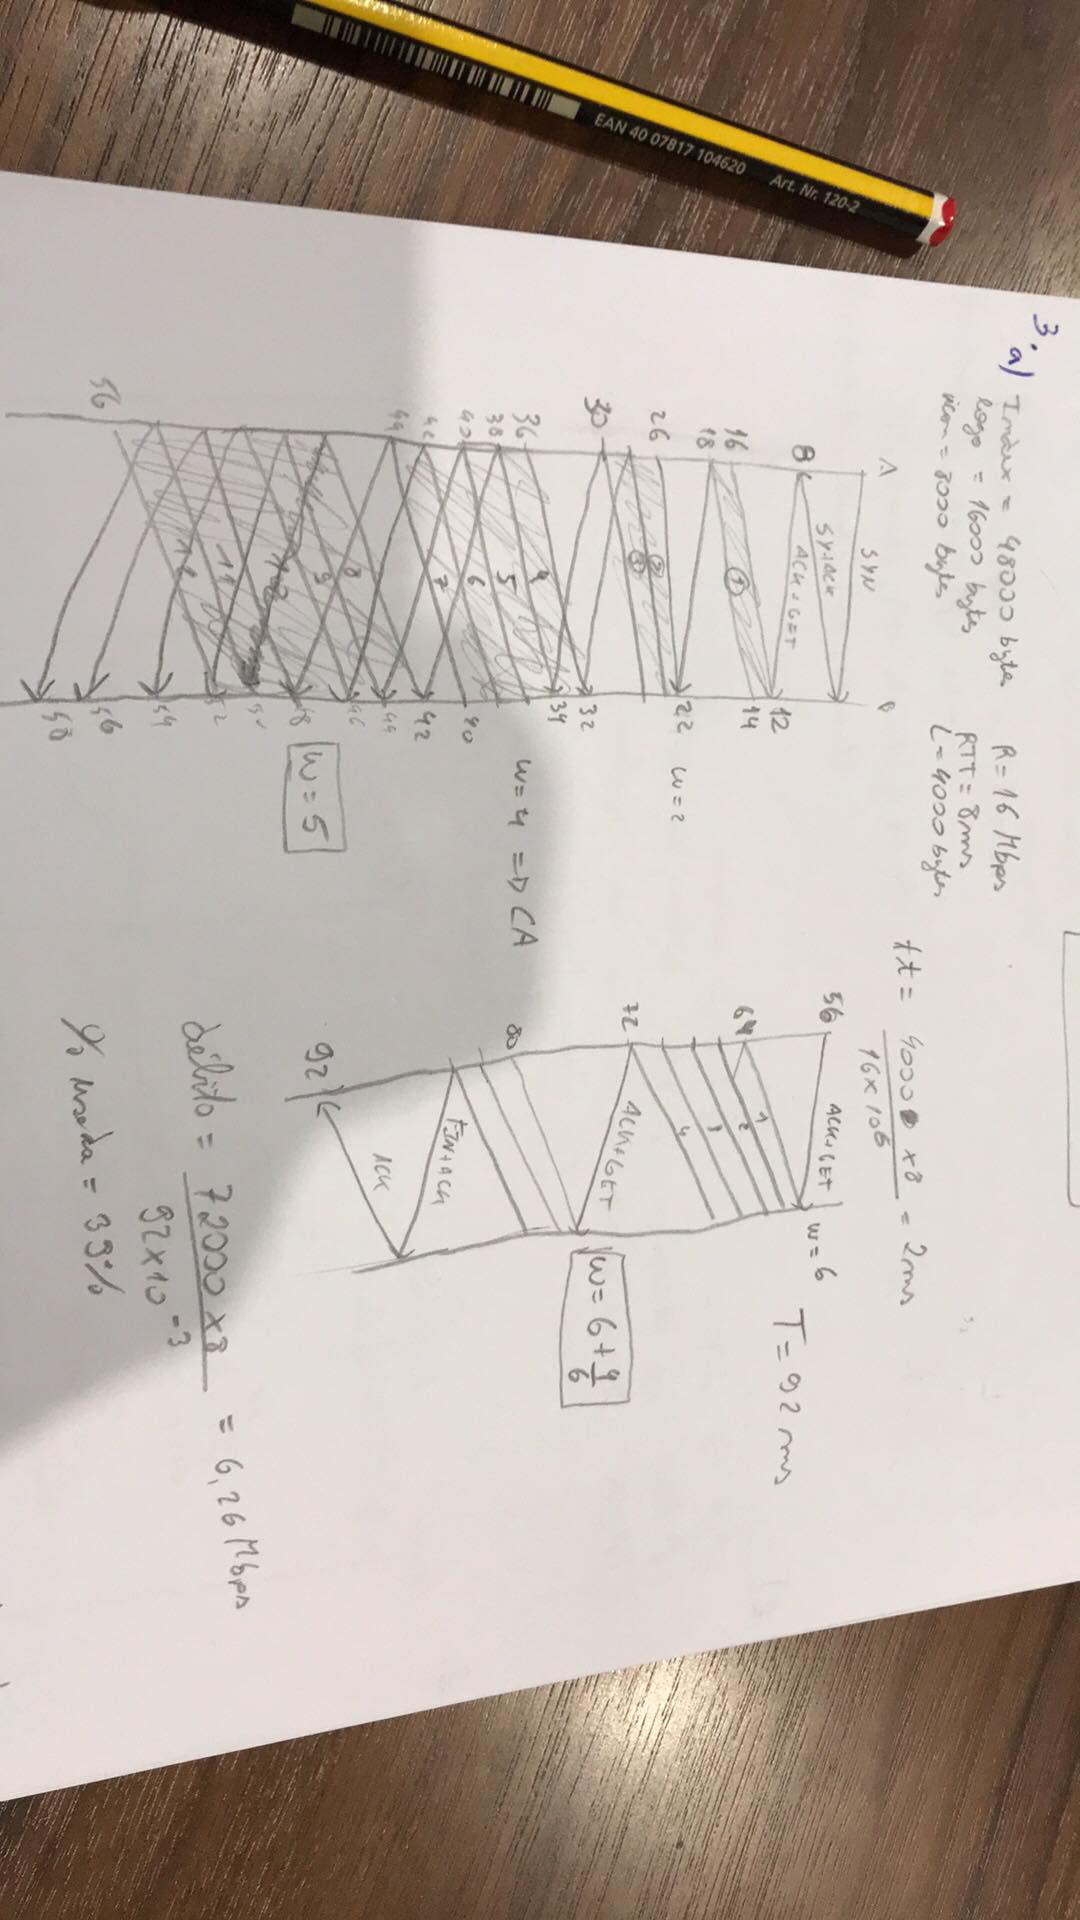 3.
a) Index = 48000 bytes
logo = 16000 bytes
icon = 8000 bytes
R = 16 Mbps
RTT = 8ms
L = 4000 bytes
tt = 4000 x8 / 16x10⁶ = 2ms
A B
SYN
SY+ACK
8
ACK+GET
12
14
16
①
18
22 w=2
26
②
③
30
32
34
36
4
w=4 => CA
38
5
40
6
40
7
42
42
44
44
46
8
9
48
w=5
10
52
11
12
54
56
56
58
56 ACK+GET w=6
T = 92 ms
64
1
2
3
4
72 ACK+GET
w = 6 + 4/6
80
FIN+ACK
ACK
92
débito = 72000 x8 / 92x10⁻³ = 6,26 Mbps
% usada = 39%
EAN 40 07817 104620
Art. Nr. 120-2